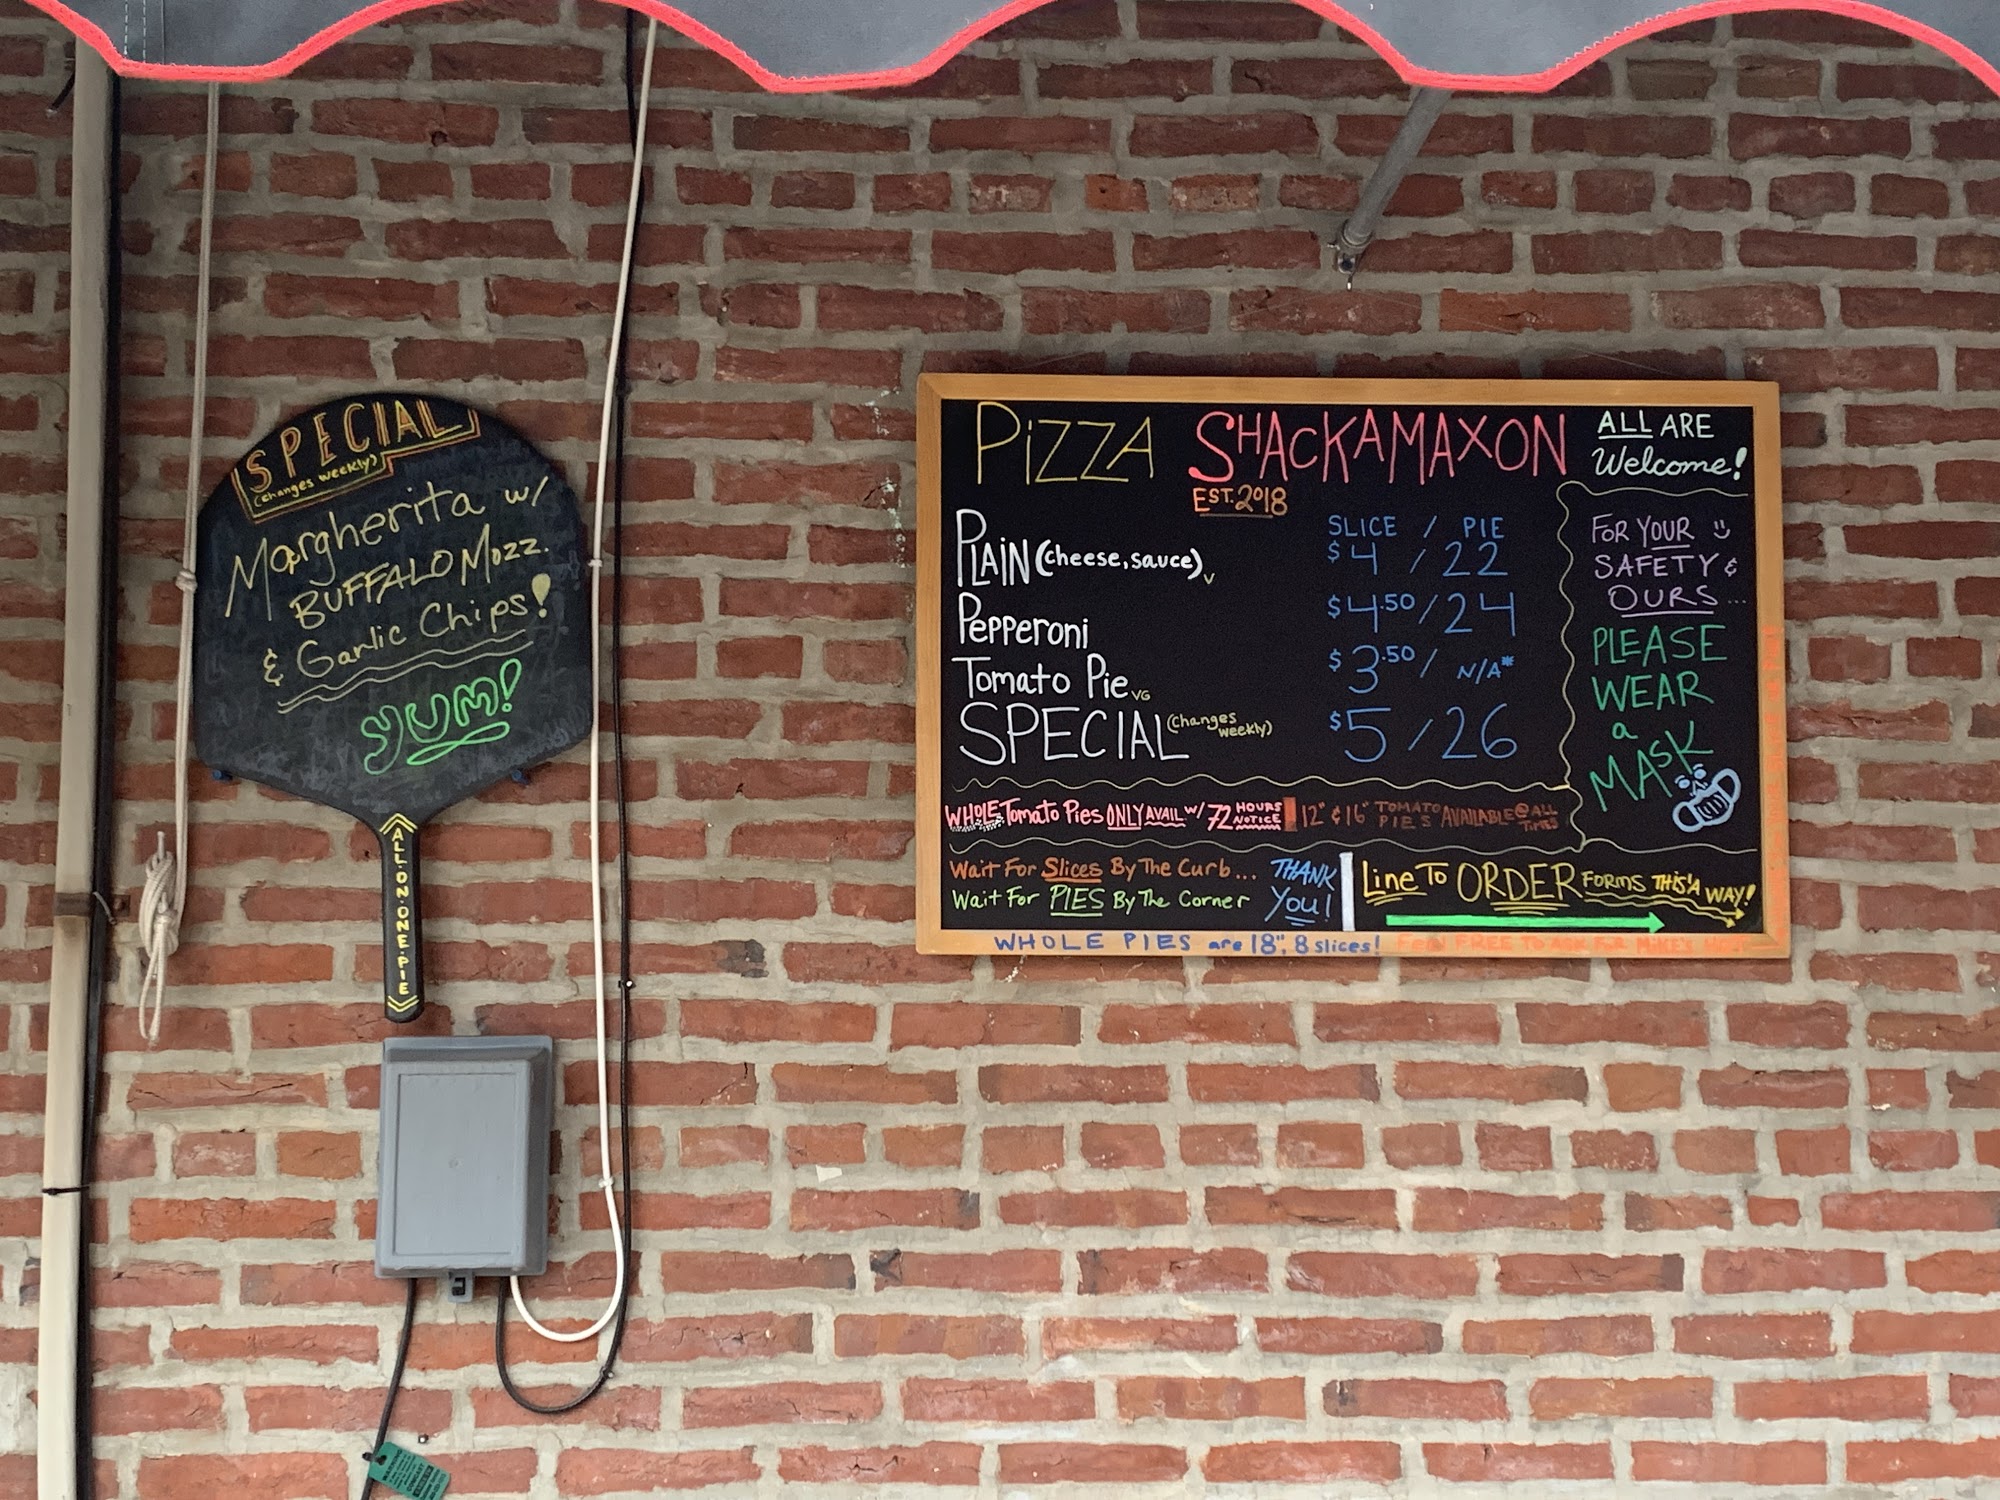 SPECIAL
(changes weekly)
Margherita w/
BUFFALO Mozz.
& Garlic Chips!
YUM!
ALL.ON.ONE.PIE
PiZZA SHACKAMAXON
EST. 2018
ALL ARE
Welcome!
SLICE / PIE
PLAIN (cheese, sauce) V $4 / 22
Pepperoni $4.50 / 24
Tomato Pie VG $3.50 / N/A*
SPECIAL (changes weekly) $5 / 26
FOR YOUR
SAFETY &
OURS...
PLEASE
WEAR
a
MASK
WHOLE Tomato Pies ONLY AVAIL w/ 72 HOURS NOTICE
12" & 16" TOMATO PIES AVAILABLE @ ALL TIMES
Wait For Slices By The Curb...
Wait For PIES By The Corner
THANK
You!
Line To ORDER FORMS THIS'A WAY!
WHOLE PIES are 18", 8 slices! FEEL FREE TO ASK FOR MIKE'S